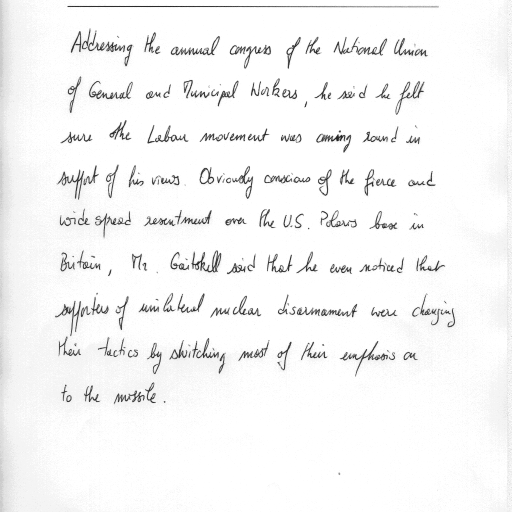 Addressing the annual congress of the National Union
of General and Municipal Workers, he said he felt
sure the Labour movement was coming round in
support of his views. Obviously conscious of the fierce and
wide spread resentment over the U.S. Polaris base in
Britain, Mr. Gaitskell said that he even noticed that
supporters of unilateral nuclear disarmament were changing
their tactics by switching most of their emphasis on
to the missile.